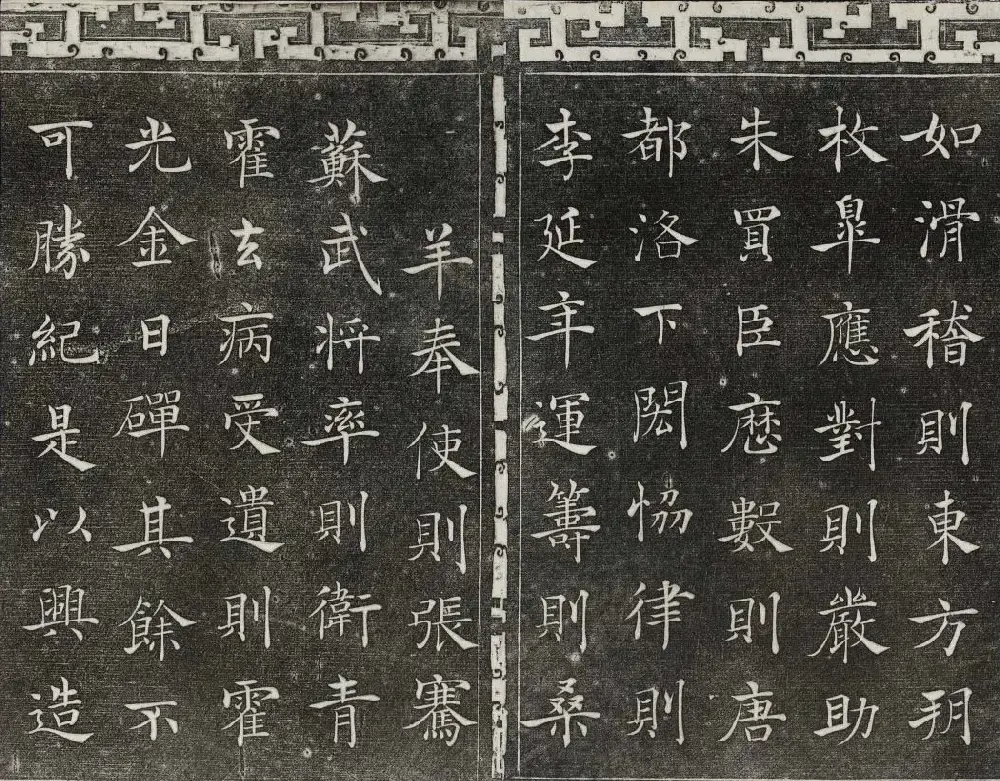 如滑稽則東方朔
枚皐應對則嚴助
朱買臣厯數則唐
都洛下閎恊律則
李延年運籌則桑
羊奉使則張騫
蘇武将率則衛青
霍去病受遺則霍
光金日磾其餘不
可勝紀是以興造